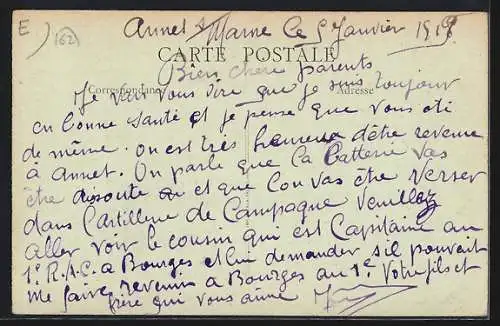 E
(62)
Annet s Marne le 5 Janvier 1919
CARTE POSTALE
Bien chers parents
Correspondance Adresse
Je vais vous dire que je suis toujour
en bonne santé et je pense que vous ete
de même. on est très heureux d'être revenu
à Annet. On parle que la Batterie vas
être dissoute et que l'on vas être verser
dans l'artillerie de Campagne Veuillez
aller voir le cousin qui est Capitaine au
1e R.A.C. à Bourges et lui demander s'il pouvait
me faire revenir à Bourges au 1e. Votre fils et
frère qui vous aime